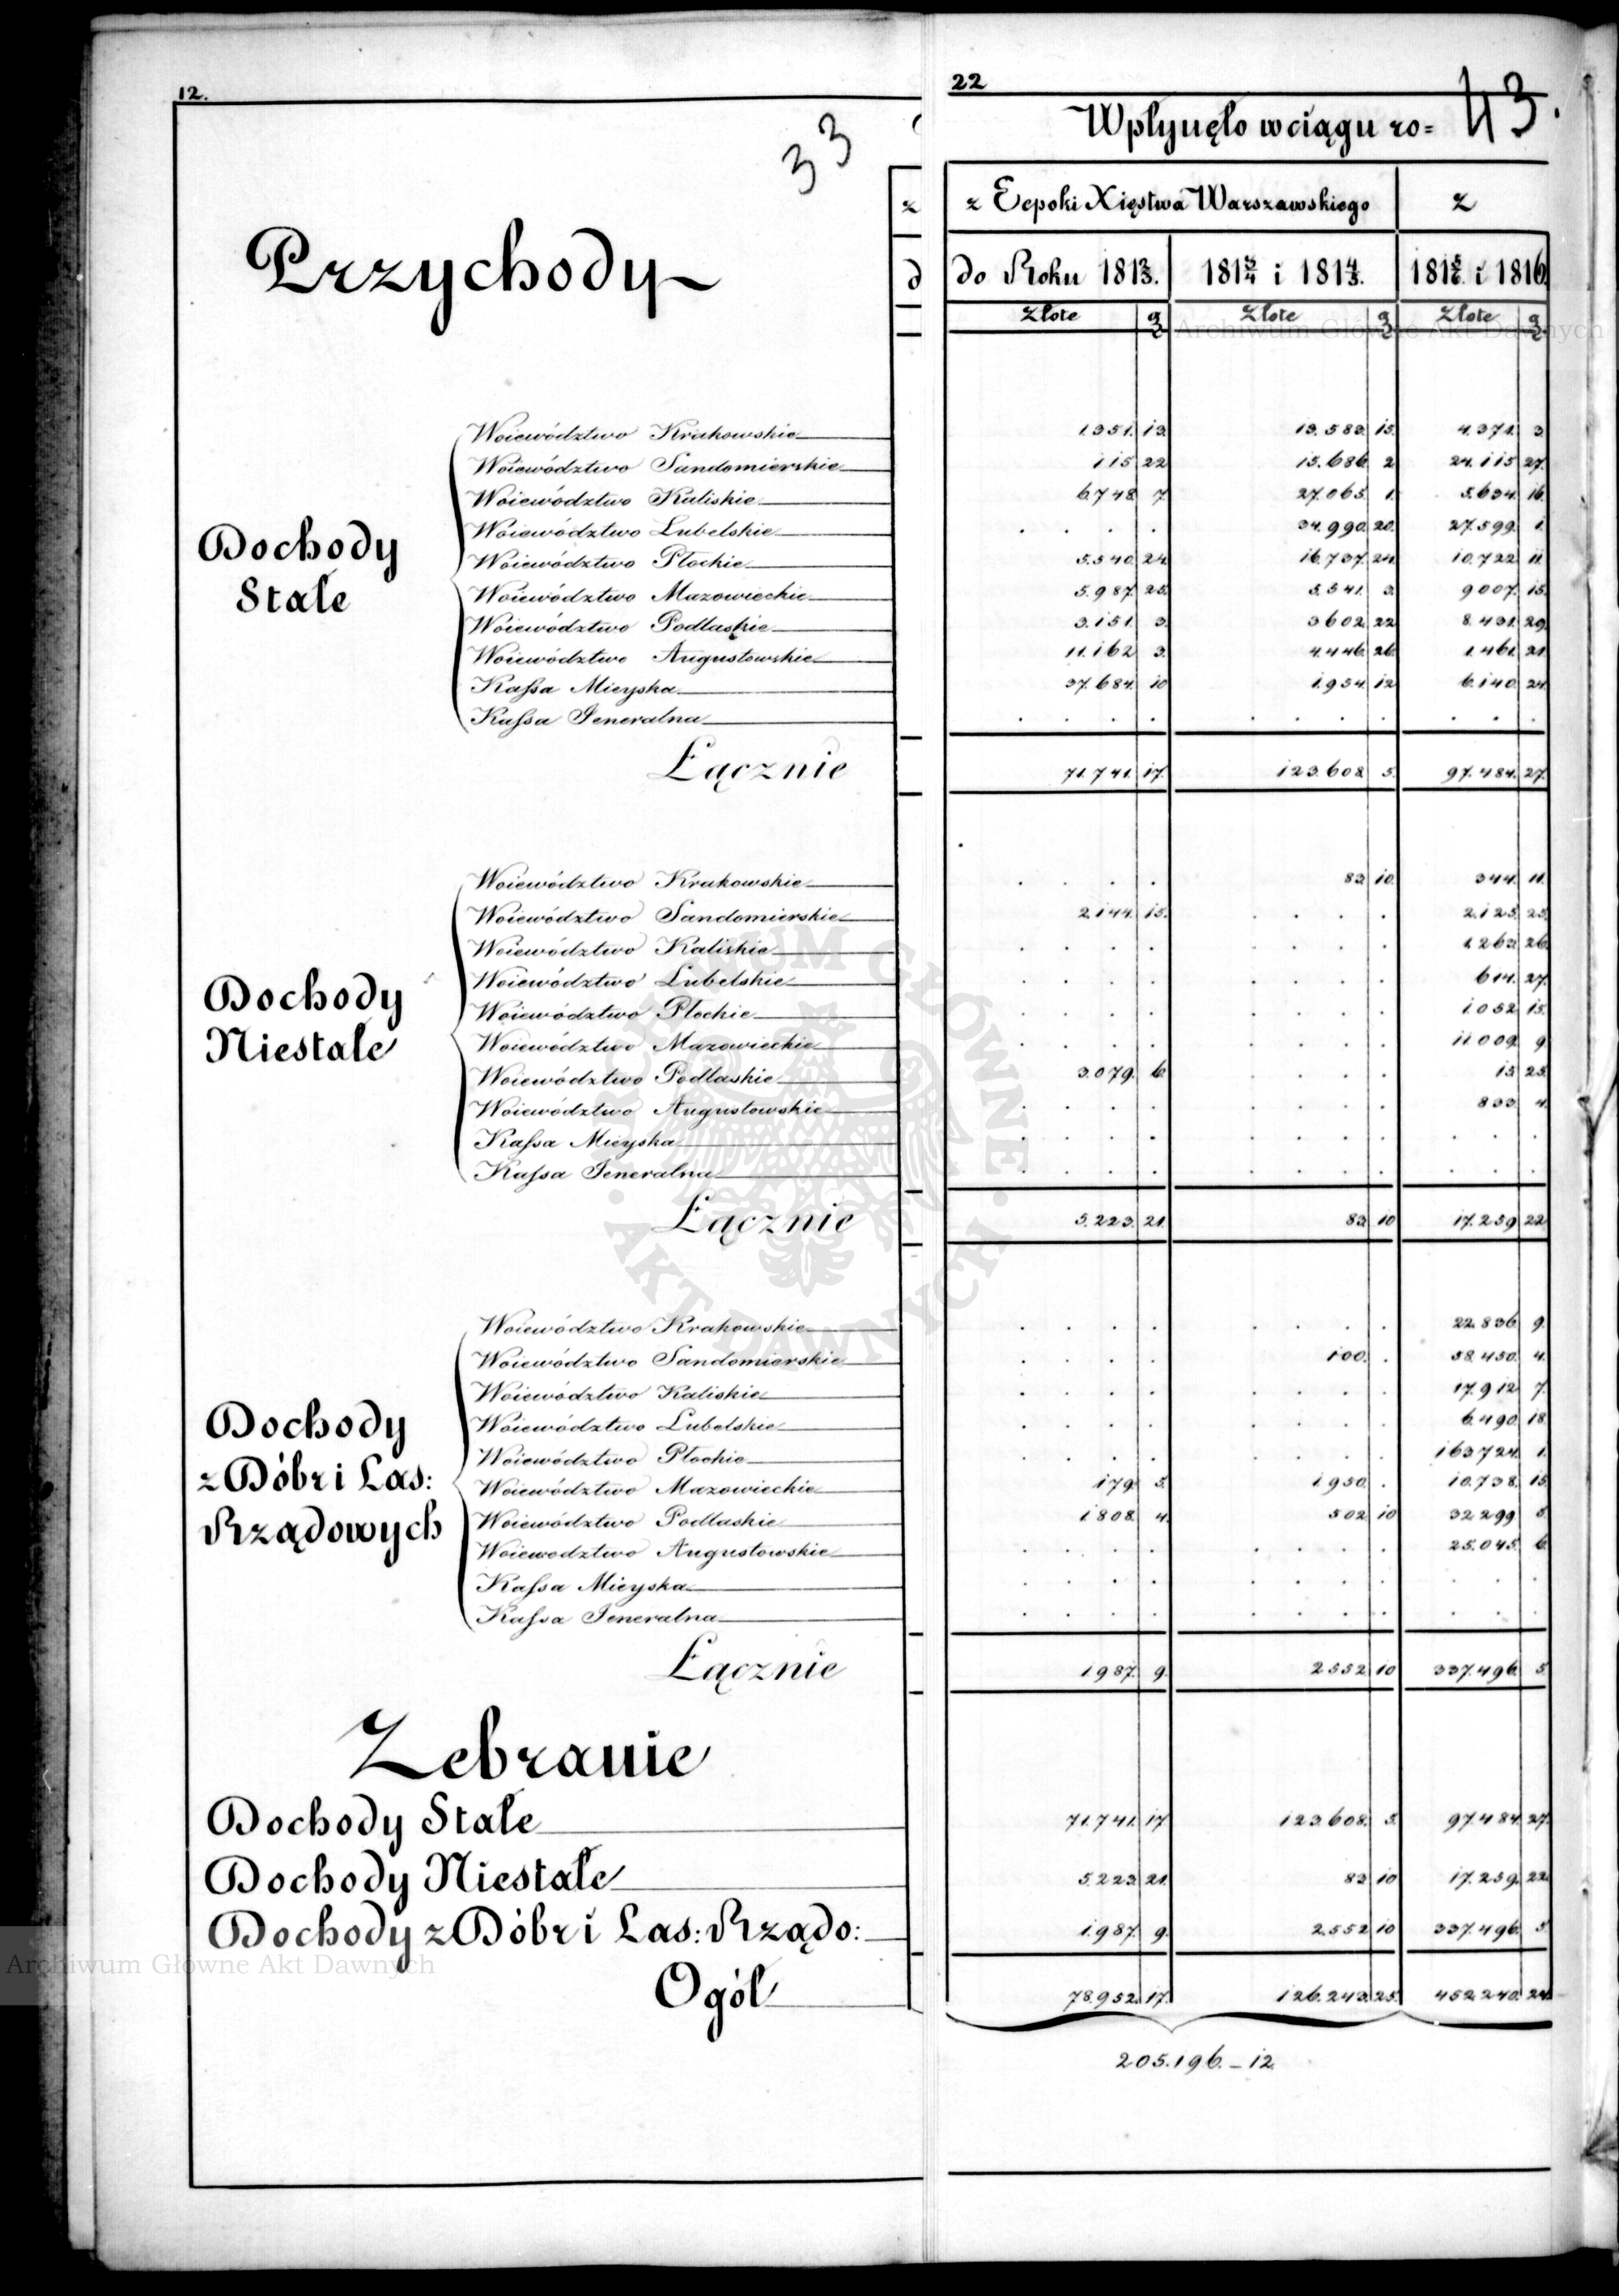 12.
33
22
43.
Wpłynęło w ciągu ro=
z
z Eepoki Xięstwa Warszawskiego
z
Przychody
d
do Roku 181 2/3.
181 3/4 i 181 4/5.
181 5/6. i 1816.
Złote gr
Złote gr
Złote gr
Dochody
Stałe
Woiewództwo Krakowskie 1.351. 13. 13.583. 15. 4.371. 3.
Woiewództwo Sandomierskie 115 22 15.686. 2 24.115 27.
Woiewództwo Kaliskie 6.748 7. 27.065. 1. 5.634. 16.
Woiewództwo Lubelskie . . . . 34.990. 20. 27.599. 1.
Woiewództwo Płockie 5.540. 24. 16.737. 24. 10.722 11.
Woiewództwo Mazowieckie 5.987. 25. 5.541. 3. 9.007. 15.
Woiewództwo Podlaskie 3.151. 3. 3602. 22 8.431. 29.
Woiewództwo Augustowskie 11.162 3. 4.446. 26. 1.461. 21
Kassa Mieyska 37.684. 10 1.954. 12 6.140. 24.
Kassa Jeneralna . . . . . . . . . . .
Łącznie 71.741. 17. 123.608 5. 97.484. 27.
Dochody
Niestałe
Woiewództwo Krakowskie . . . . 83 10. 344. 11.
Woiewództwo Sandomierskie 2.144. 15. . . . . 2.125. 25.
Woiewództwo Kaliskie . . . . . . . . 1.263. 26.
Woiewództwo Lubelskie . . . . . . . . 614. 27.
Woiewództwo Płockie . . . . . . . . 1.052 15.
Woiewództwo Mazowieckie . . . . . . . . 11.009. 9.
Woiewództwo Podlaskie 3.079. 6. . . . . 15 25.
Woiewództwo Augustowskie . . . . . . . . 833. 4.
Kassa Mieyska . . . . . . . . . . .
Kassa Jeneralna . . . . . . . . . . .
Łącznie 5.223. 21. 83. 10 17.259 22
Dochody
z Dóbr i Las:
Rządowych
Woiewództwo Krakowskie . . . . . . . . 22.836. 9.
Woiewództwo Sandomierskie . . . . 100. . 58.450. 4.
Woiewództwo Kaliskie . . . . . . . . 17.912 7.
Woiewództwo Lubelskie . . . . . . . . 6.490. 18.
Woiewództwo Płockie . . . . . . . . 163.724. 1.
Woiewództwo Mazowieckie 179. 5. 1.950. . 10.738. 15.
Woiewództwo Podlaskie 1808. 4. 502 10 32.299 5.
Woiewodztwo Augustowskie . . . . . . . . 25.045. 6.
Kassa Mieyska . . . . . . . . . . .
Kassa Jeneralna . . . . . . . . . . .
Łącznie 1.987. 9. 2.552 10 337.496. 5.
Zebranie
Dochody Stałe 71.741. 17 123.608. 5. 97.484. 27.
Dochody Niestałe 5.223. 21. 83 10 17.259. 22.
Dochody z Dóbr i Las: Rządo: 1.987. 9. 2.552 10 337.496. 5.
Ogół 78.952. 17. 126.243. 25. 452.240. 24.
205.196. – 12.
Archiwum Główne Akt Dawnych
Archiwum Główne Akt Dawnych
ARCHIWUM GŁÓWNE · AKT DAWNYCH ·